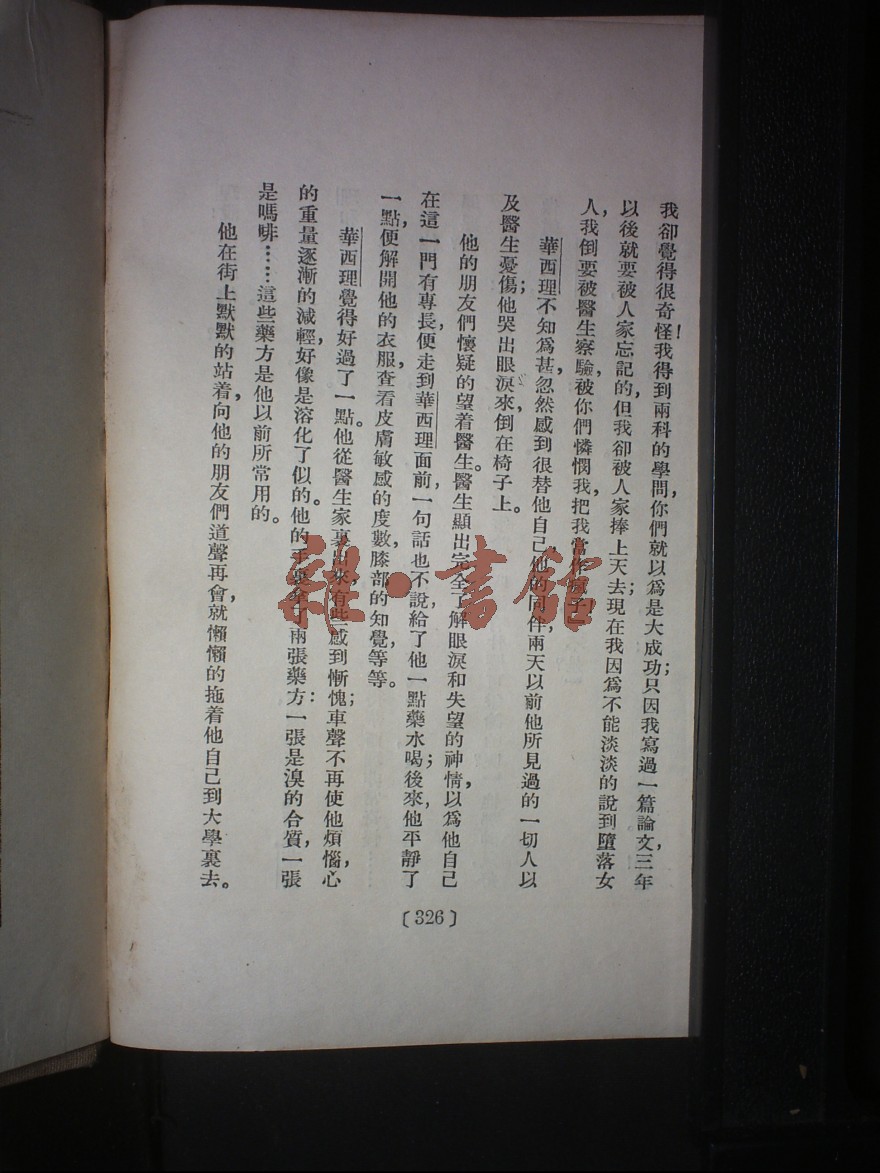 我卻覺得很奇怪！我得到兩科的學問，你們就以爲是大成功；只因我寫過一篇論文，三年
以後就要被人家忘記的，但我卻被人家捧上天去；現在我因爲不能淡淡的說到墮落女
人，我倒要被醫生察驗，被你們憐憫我，把我當作瘋子！
華西理不知爲甚，忽然感到很替他自己他的同伴兩天以前他所見過的一切人以
及醫生憂傷；他哭出眼淚來，倒在椅子上。
他的朋友們懷疑的望着醫生。醫生顯出完全了解眼淚和失望的神情，以爲他自己
在這一門有專長，便走到華西理面前，一句話也不說給了他一點藥水喝；後來，他平靜了
一點，便解開他的衣服，查看皮膚敏感的度數，膝部的知覺等等。
華西理覺得好過了一點。他從醫生家裏出來，有些感到慚愧；車聲不再使他煩惱，心
的重量逐漸的減輕，好像是溶化了似的。他的手裏拿了兩張藥方：一張是溴的合質，一張
是嗎啡……這些藥方是他以前所常用的。
他在街上默默的站着，向他的朋友們道聲再會，就懶懶的拖着他自己到大學裏去。
〔326〕
雜·書館